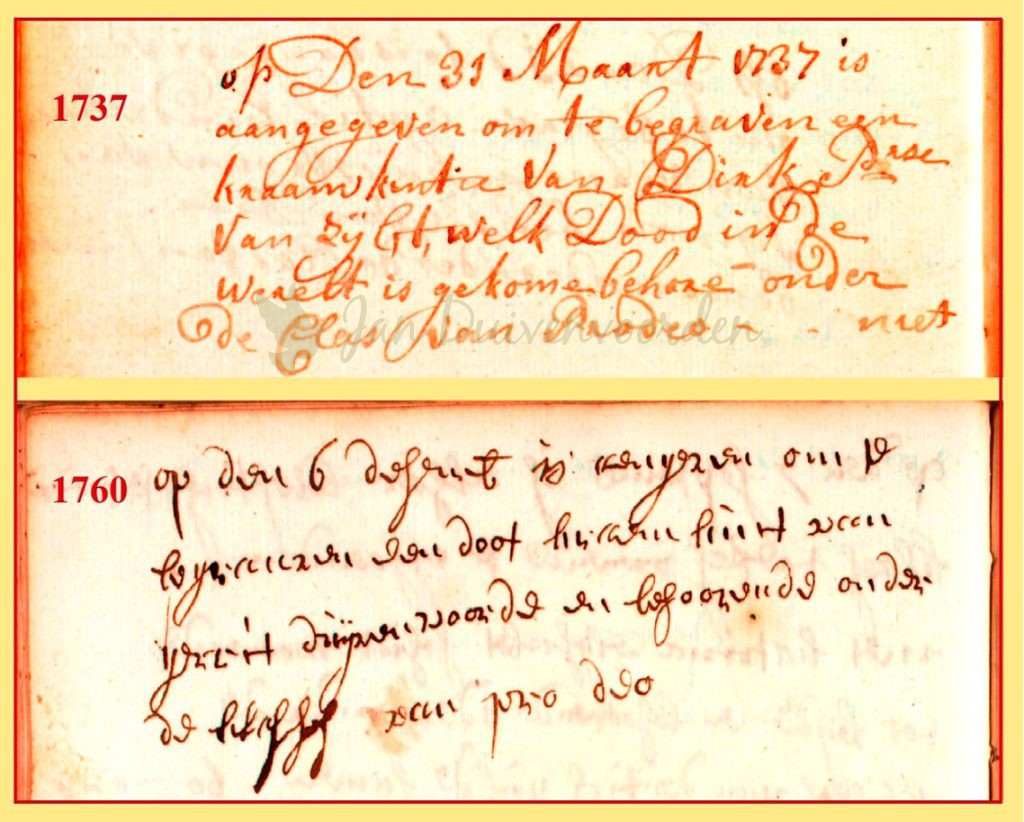 1737
op Den 31 Maart 1737 is
aangegeven om te begraven een
kraam kintie van Dirk Pase
van zijlst, welk Dood in de
werelt is gekome behore onder
de Clas van Prodeo - . . niet
Jan Duivenvoorden
1760
op den 6 is aengeven om te
begraeuven een doot kraem kint van
gerrit duijvenvoorde en behoorende onder
de van pro deo